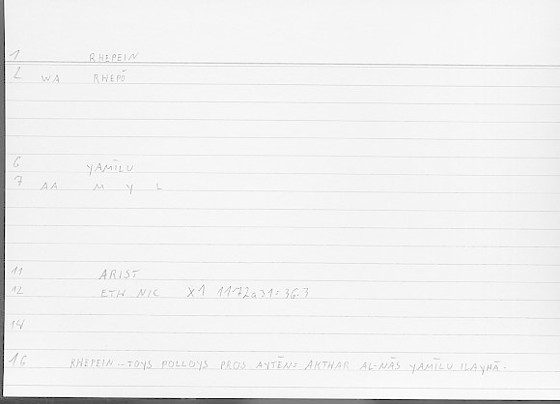 1 RHEPEIN
2 WA RHEPŌ
6 YAMĪLU
7 AA M Y L
11 ARIST
12 ETH NIC X1 1172a31=36.3
14
16 RHEPEIN – TOYS POLLOYS PROS AYTĒN= AKTHAR AL-NĀS YAMĪLU ILAYHĀ.